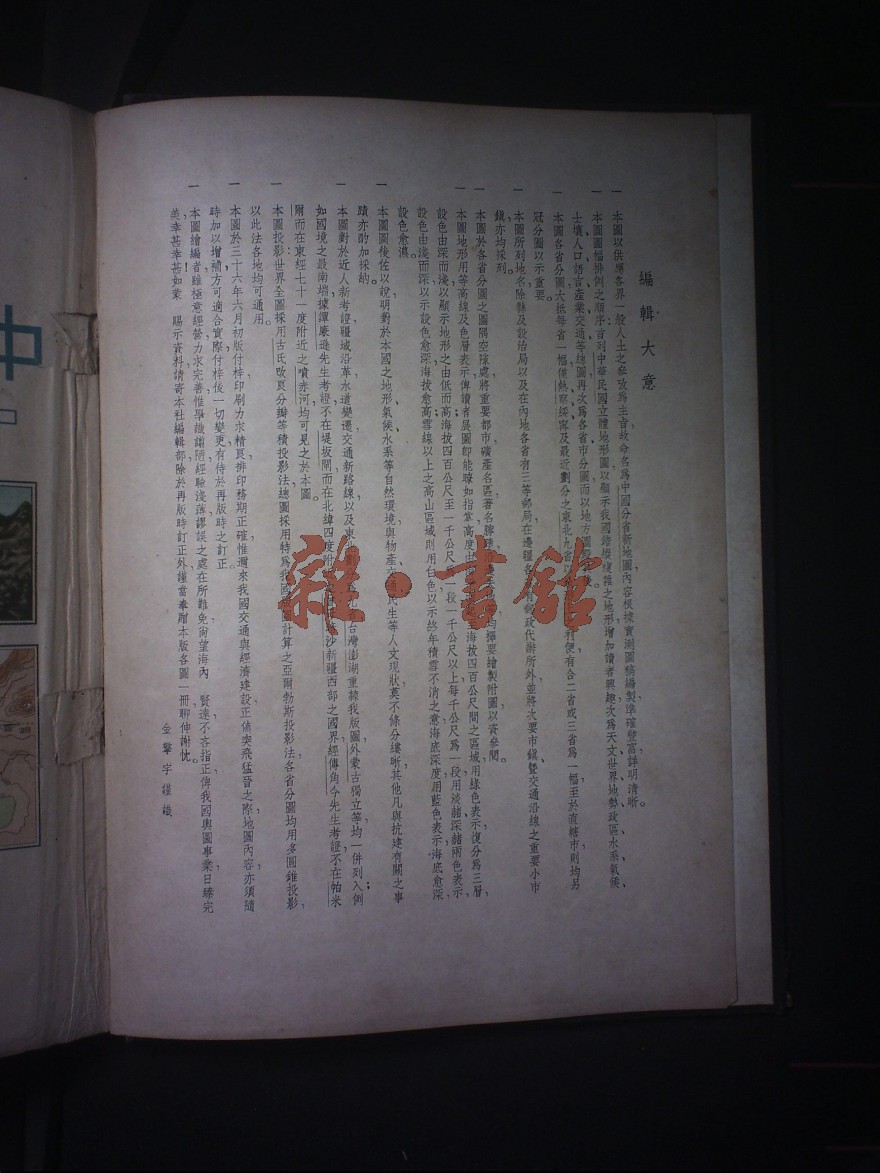 編輯大意
一 本圖以供應各界一般人士之參攷為主旨故命名為中國分省新地圖內容根據實測圖稿編製準確豐富詳明清晰。
一 本圖圖幅排例之順序首列中華民國立體地形圖以顯示我國錯綜複雜之地形增加讀者興趣次為天文世界地勢政區水系氣候、
土壤人口語言產業交通等總圖再次為各省市分圖而以地方圖
一 本圖各省分圖大抵每省一幅僅熱察綏甯及最近劃分之東北九省以 利便有合二省或三省為一幅至於直轄市則均另
冠分圖以示重要。
一 本圖所列地名除縣及設治局以及在內地各省有三等郵局在邊疆各 有郵政代辦所外並將次要市鎮暨交通沿線之重要小市
鎮亦均採列。
一 本圖於各省分圖之圖隅空隙處將重要都市礦產名區著名 均擇要繪製附圖以資參閱。
一 本圖地形用等高線及色層表示俾讀者展圖即能瞭如指掌高度由 海拔四百公尺間之區域用綠色表示復分為三層,
設色由深而淺以顯示地形之由低而高海拔四百公尺至一千公尺 一段一千公尺以上每千公尺為一段用淡赭深赭兩色表示
設色由淺而深以示設色愈深海拔愈高雪線以上之高山區域則用白色以示終年積雪不消之意海底深度用藍色表示海底愈深
設色愈濃。
一 本圖圖後佐以說明對於本國之地形氣候水系等自然環境與物產 民生等人文現狀莫不條分縷晰其他凡與抗建有關之事
蹟亦酌加採納。
一 本圖對於近人新考證疆域沿革水道變遷交通新路線以及東北 台灣澎湖重隸我版圖外蒙古獨立等均一併列入例
如國境之最南端據譚廉遜先生考證不在堤坂閘而在北緯四度附 沙新疆西部之國界經傅角今先生考證不在帕米
爾而在東經七十一度附近之噴赤河均可見之於本圖。
一 本圖投影世界全圖採用古氏改良分瓣等積投影法總圖採用特為我國 圖計算之亞爾勃斯投影法各省分圖均用多圓錐投影,
以此法各地均可通用。
一 本圖於三十六年六月初版付梓印刷力求精良排印務期正確惟邇來我國交通與經濟建設正值突飛猛晉之際地圖內容亦須隨
時加以增補方可適合實際付梓後一切變更有待於再版時之訂正。
一 本圖繪編者雖極意經營力求完善惟學識譾陋經驗淺薄謬誤之處在所難免尚望海內 賢達不吝指正俾我國輿圖事業日臻完
美幸甚幸甚如蒙 賜示資料請寄本社編輯部除於再版時訂正外謹當奉贈本版各圖一冊聊伸謝忱。
金擎宇謹識
雜·書館